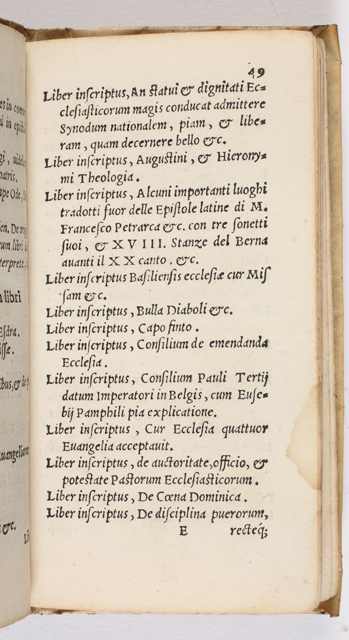 49
Liber inscriptus, An statui & dignitati Ec=
clesiasticorum magis conducat admittere
Synodum nationalem, piam, & libe=
ram, quam decernere bello &c.
Liber inscriptus, Augustini, & Hierony=
mi Theologia.
Liber inscriptus, Alcuni importanti luoghi
tradotti fuor delle Epistole latine di M.
Francesco Petrarca &c. con tre sonetti
suoi, & XVIII. Stanze del Berna
auanti il XX canto. &c.
Liber inscriptus Basiliensis ecclesiæ cur Mis
sam &c.
Liber inscriptus, Bulla Diaboli &c.
Liber inscriptus, Capo finto.
Liber inscriptus, Consilium de emendanda
Ecclesia.
Liber inscriptus, Consilium Pauli Tertij
datum Imperatori in Belgis, cum Euse=
bij Pamphili pia explicatione.
Liber inscriptus, Cur Ecclesia quattuor
Euangelia acceptauit.
Liber inscriptus, de auctoritate, officio, &
potestate Pastorum Ecclesiasticorum.
Liber inscriptus, De Cœna Dominica.
Liber inscriptus, De disciplina puerorum,
E recteq́;